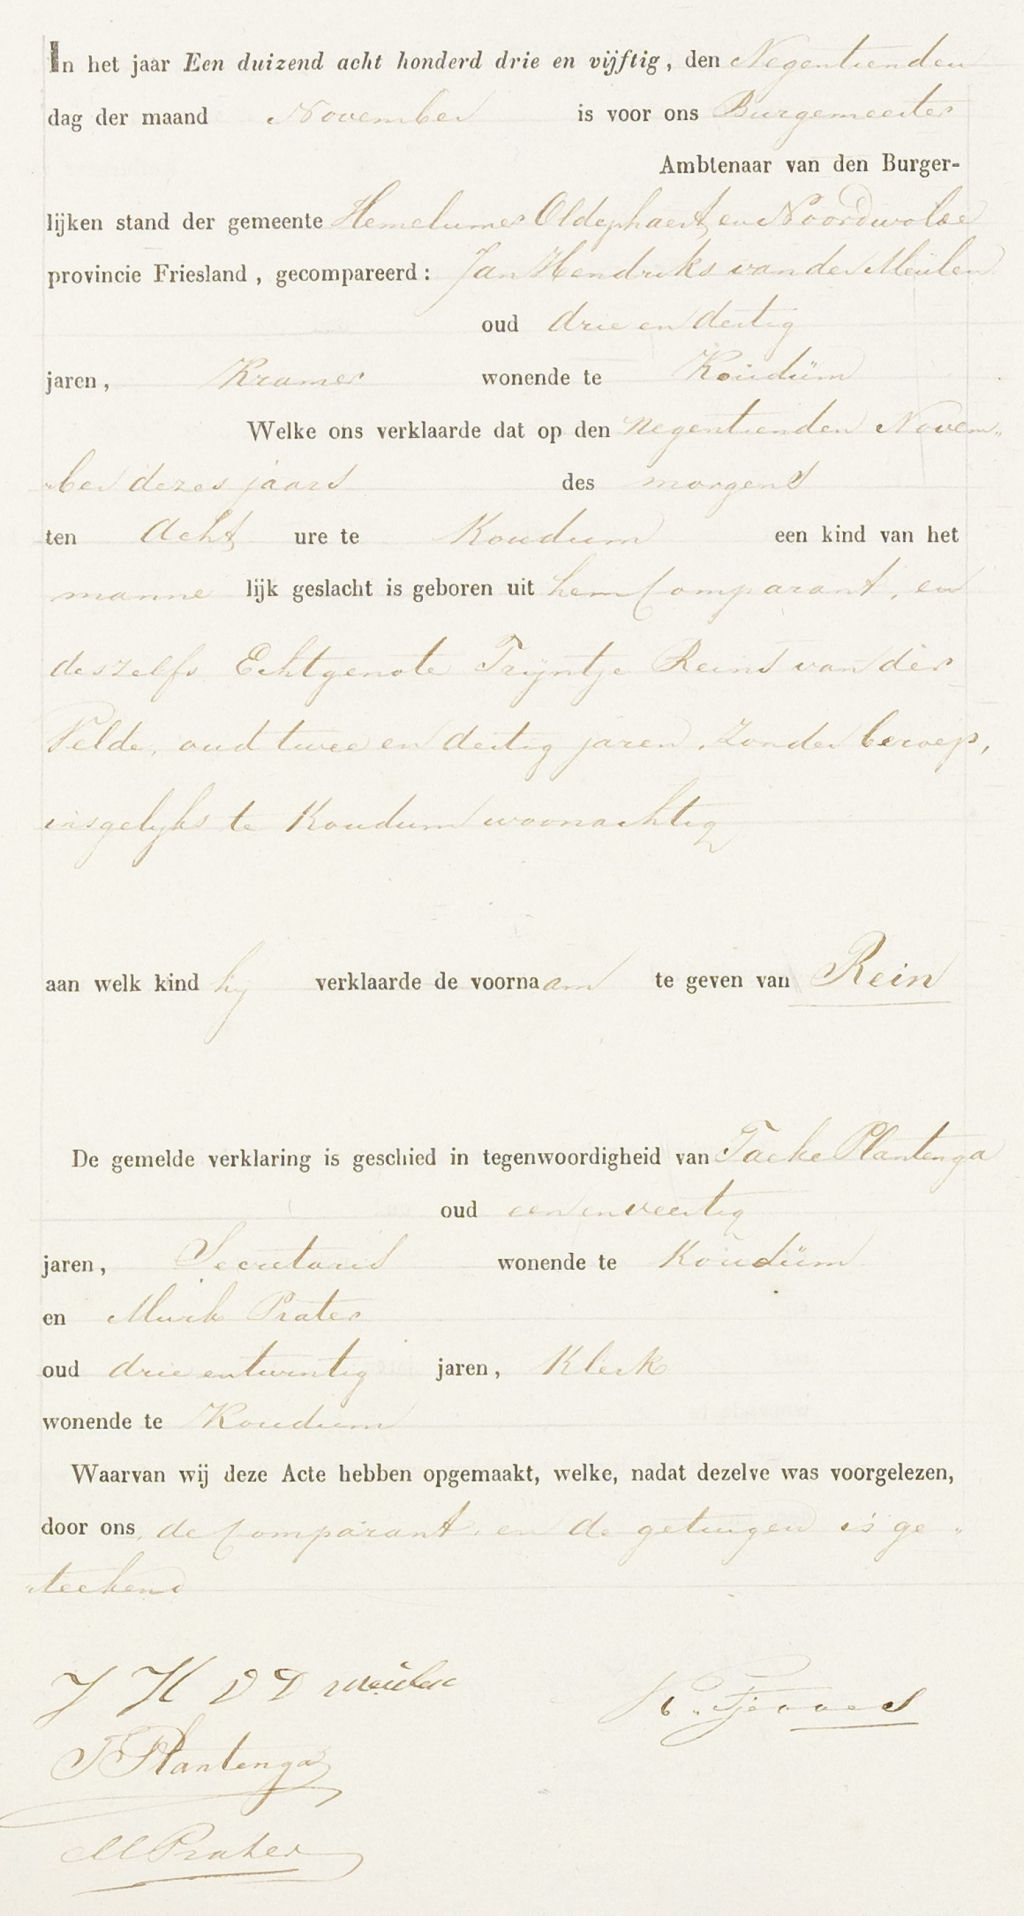 In het jaar Een duizend acht honderd drie en vijftig, den Negentienden
dag der maand November is voor ons Burgemeester
Ambtenaar van den Burger-
lijken stand der gemeente Hemelumer Oldephaert en Noordwolde
provincie Friesland, gecompareerd: Jan Hendriks van der Meulen
oud drie en dertig
jaren, Kramer wonende te Koudüm
Welke ons verklaarde dat op den negentienden Novem„
ber dezes jaars des morgens
ten Acht ure te Koudum een kind van het
manne lijk geslacht is geboren uit hem Comparant, en
deszelfs Echtgenote Trijntje Reins van der
Velde, oud twee en dertig jaren, zonder beroep,
insgelyks te Koudum woonachtig
aan welk kind hij verklaarde de voornaam te geven van Rein
De gemelde verklaring is geschied in tegenwoordigheid van Taeke Plantenga
oud een en veertig
jaren, Secretaris wonende te Koudüm
en Murk Prater
oud drie en twintig jaren, Klerk
wonende te Koudum
Waarvan wij deze Acte hebben opgemaakt, welke, nadat dezelve was voorgelezen,
door ons, de Comparant, en de getuigen is ge„
„teekend
J H V D Meulen
T Plantenga
M Prater